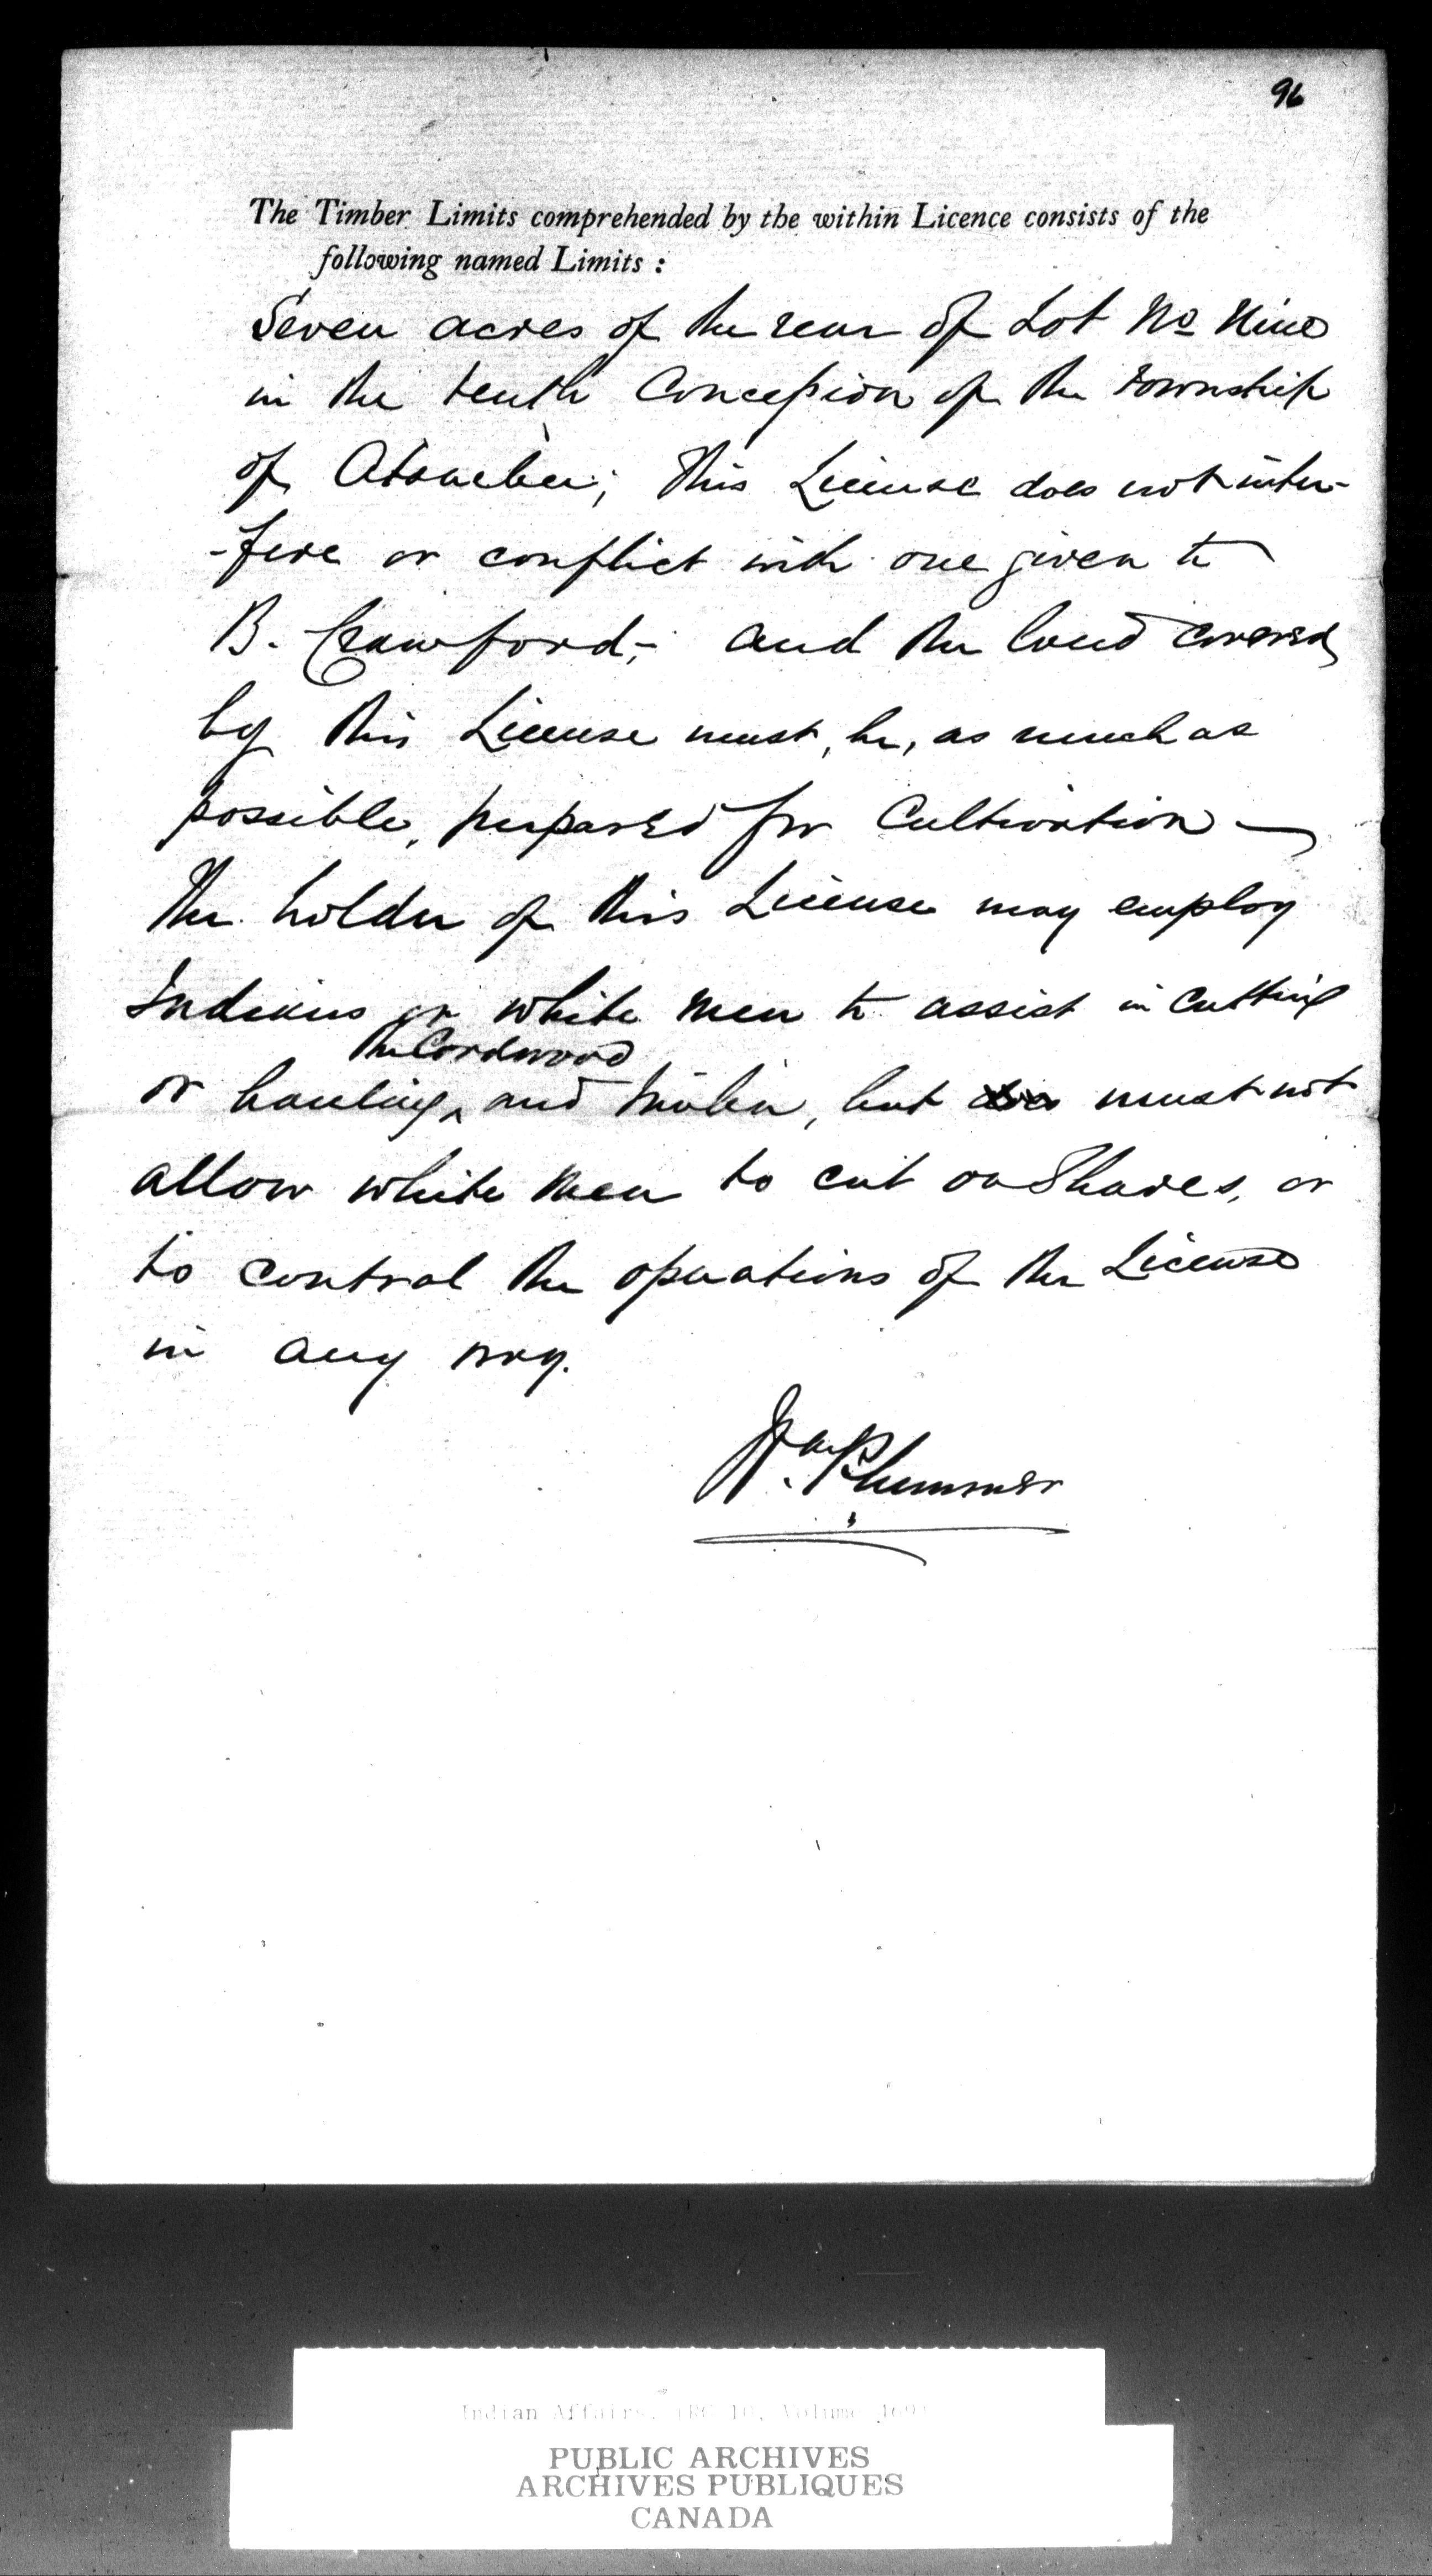 96
The Timber Limits comprehended by the within Licence consists of the
following named Limits :
Seven acres of the rear of Lot No Nine
in the tenth Concession of the Township
of Otonabee; This License does not inter-
-fere or conflict with one given to
B. Crawford;- and the land covered
by this License must, be, as much as
possible, prepared for Cultivation —
The holder of this License may employ
Indians or white men to assist in Cutting
the Cordwood
or hauling ^ and timber, but must not
allow white men to cut on Shares, or
to control the operations of the License
in any way.
Wm. Plummer
Indian Affairs. (RG 10, Volume
PUBLIC ARCHIVES
ARCHIVES PUBLIQUES
CANADA